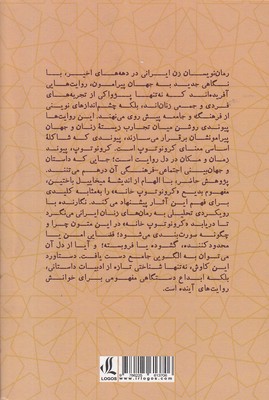 رمان‌نویسان زن ایرانی در دهه‌های اخیر، با
نگاهی جدید به جهان پیرامون، روایت‌هایی
آفریده‌اند که نه‌تنها پژواکی از تجربه‌های
فردی و جمعی زنان‌اند، بلکه چشم‌اندازهای نوینی
از فرهنگ و جامعه پیش روی می‌نهند. این روایت‌ها
پیوندی روشن میان تجارب زیستهٔ زنان و جهان
پیرامونشان برقرار می‌سازند، پیوندی که شاکلهٔ
اساس معنای کرونوتوپ است. کرونوتوپ، پیوند
زمان و مکان در دل روایت است؛ جایی که داستان
و جهان‌بینی اجتماعی-فرهنگی آن درهم می‌تنند.
پژوهش حاضر، با الهام از اندیشهٔ میخاییل باختین،
مفهوم بدیع «کرونوتوپ خانه» را به‌مثابه کلیدی
برای فهم این آثار پیشنهاد می‌کند. نگارنده با
رویکردی تحلیلی به رمان‌های زنان ایرانی می‌نگرد
تا دریابد «کرونوتوپ خانه» در این متون چرا و
چگونه صورت‌بندی می‌شود؛ فضایی امن یا
محدودکننده، گشوده یا فروبسته؛ و آیا از دل آن
می‌توان به الگویی جامع دست یافت. دستاورد
این کاوش، نه‌تنها شناختی تازه از ادبیات داستانی،
بلکه ابداع دستگاهی مفهومی برای خوانش
روایت‌های آینده است.
LOGOS
www.irlogos.com